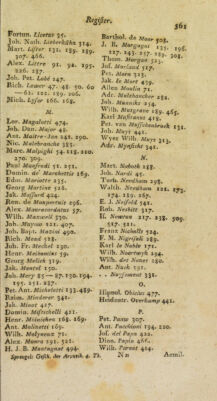 Register.
561
Fortun. Licetus 95.
Joh. Nath. Lieberkühn 314.
Mart. Lister 131. 189. 189.
307. 466.
Alex. Littre 91. 94. 195.
226. 237.
Joh. Pet. Lobé 247.
Rich. Lower 47. 48. 50. 60
— 62. 122. 189. 206.
Mich. Lyser 166. 168.
M.
Lor. Magalotti 474.
Joh. Dan. Major 48.
Ant. Maitre-Jan 248. 290.
Nic. Malebranche 385.
Marc. Malpighi 54. 218. 220.
270. 309.
Paul Manfredi 51. 251.
Domin. de Marchettis 169.
Edm. Mariotte 235.
Georg Martine 526.
Jak. Massard 404.
Rem. de Maupertuis 296.
Alex. Maurocordatus 57.
Wilh. Maxwell 350.
Joh. Mayow 121. 407.
Joh. Bapt. Mazini 496.
Rich. Mead 528.
Joh. Fr. Meckel 230.
Henr. Meibomius 39.
Georg Mellich 319.
Jak. Mentel 150.
Joh. Mery 85 — 87. 130. 194.
195. 251. 287.
Pet. Ant. Michelotti 133. 489.
Raim. Minderer 341.
Jak. Minot 427.
Domin. Mistichelli 421.
Henr. Möinichen 168. 169.
Ant. Molinetti 169.
Wilh. Molyneux 71.
Alex. Monro 191. 521.
H. J. B. Montagnat 494.
Sprengels Gesch. der Arzneik. 4. Th.
Barthol. de Moor 508.
J. B. Morgagni 135. 196.
217. 243. 257. 289. 308.
Thom. Morgan 523.
Jos. Morland 517.
Pet. Mora 323.
Jak. le Mort 409.
Allen Moulin 71.
Adr. Muleboncher 282.
Joh. Munniks 254.
Wilh. Musgrave 189. 465.
Karl Musitanus 419.
Pet. van Musschenbroek 131.
Joh. Muys 441.
Wyer Wilh. Muys 313.
Adr. Mynsicht 341.
N.
Mart. Naboth 258.
Joh. Nardi 45.
Turb. Needham 298.
Walth. Needham 121. 173.
174. 239. 267.
E. J. Neifeld 541.
Rob. Nesbitt 317.
If. Newton 127. 238. 509.
527. 521.
Franz Nicholls 524.
F. M. Nigrisoli 289.
Karl le Noble 171.
Wilh. Noortwyk 294.
Wilh. des Noues 280.
Ant. Nuck 191.
— Nuyssement 331.
O.
Hippol. Obicius 477.
Heidentr. Overkamp 441.
P.
Pet. Paaw 307.
Ant. Pacchioni 194. 220.
Jos. del Papa 422.
Dion. Papin 466.
Wilh. Parent 404.
Nn